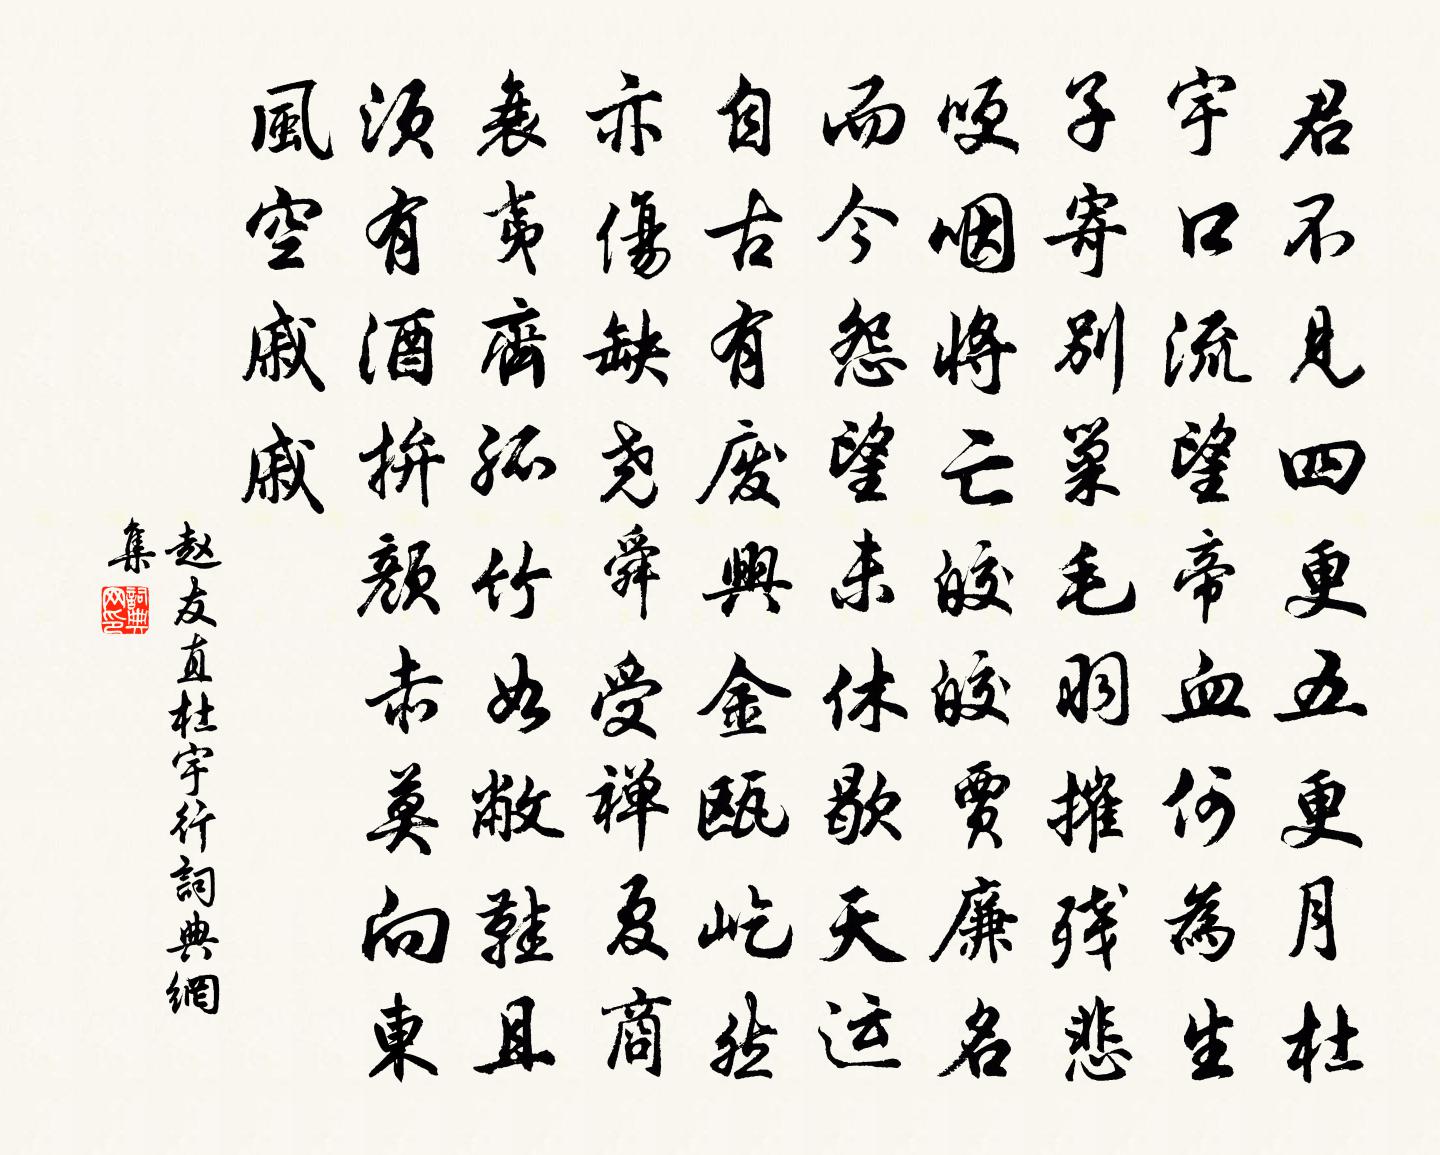 君不見四更五更月杜
宇口流望帝血何為生
子寄別巢毛羽摧残悲
哽咽將亡皎皎賈廉名
而今怨望未休歇天运
自古有废興金甌屹然
亦傷缺尧舜受禅夏商
衰夷齊孤竹如敝鞋且
須有酒拚顏赤莫向東
風空戚戚
赵友直杜宇行詞典網
集
詞典网印